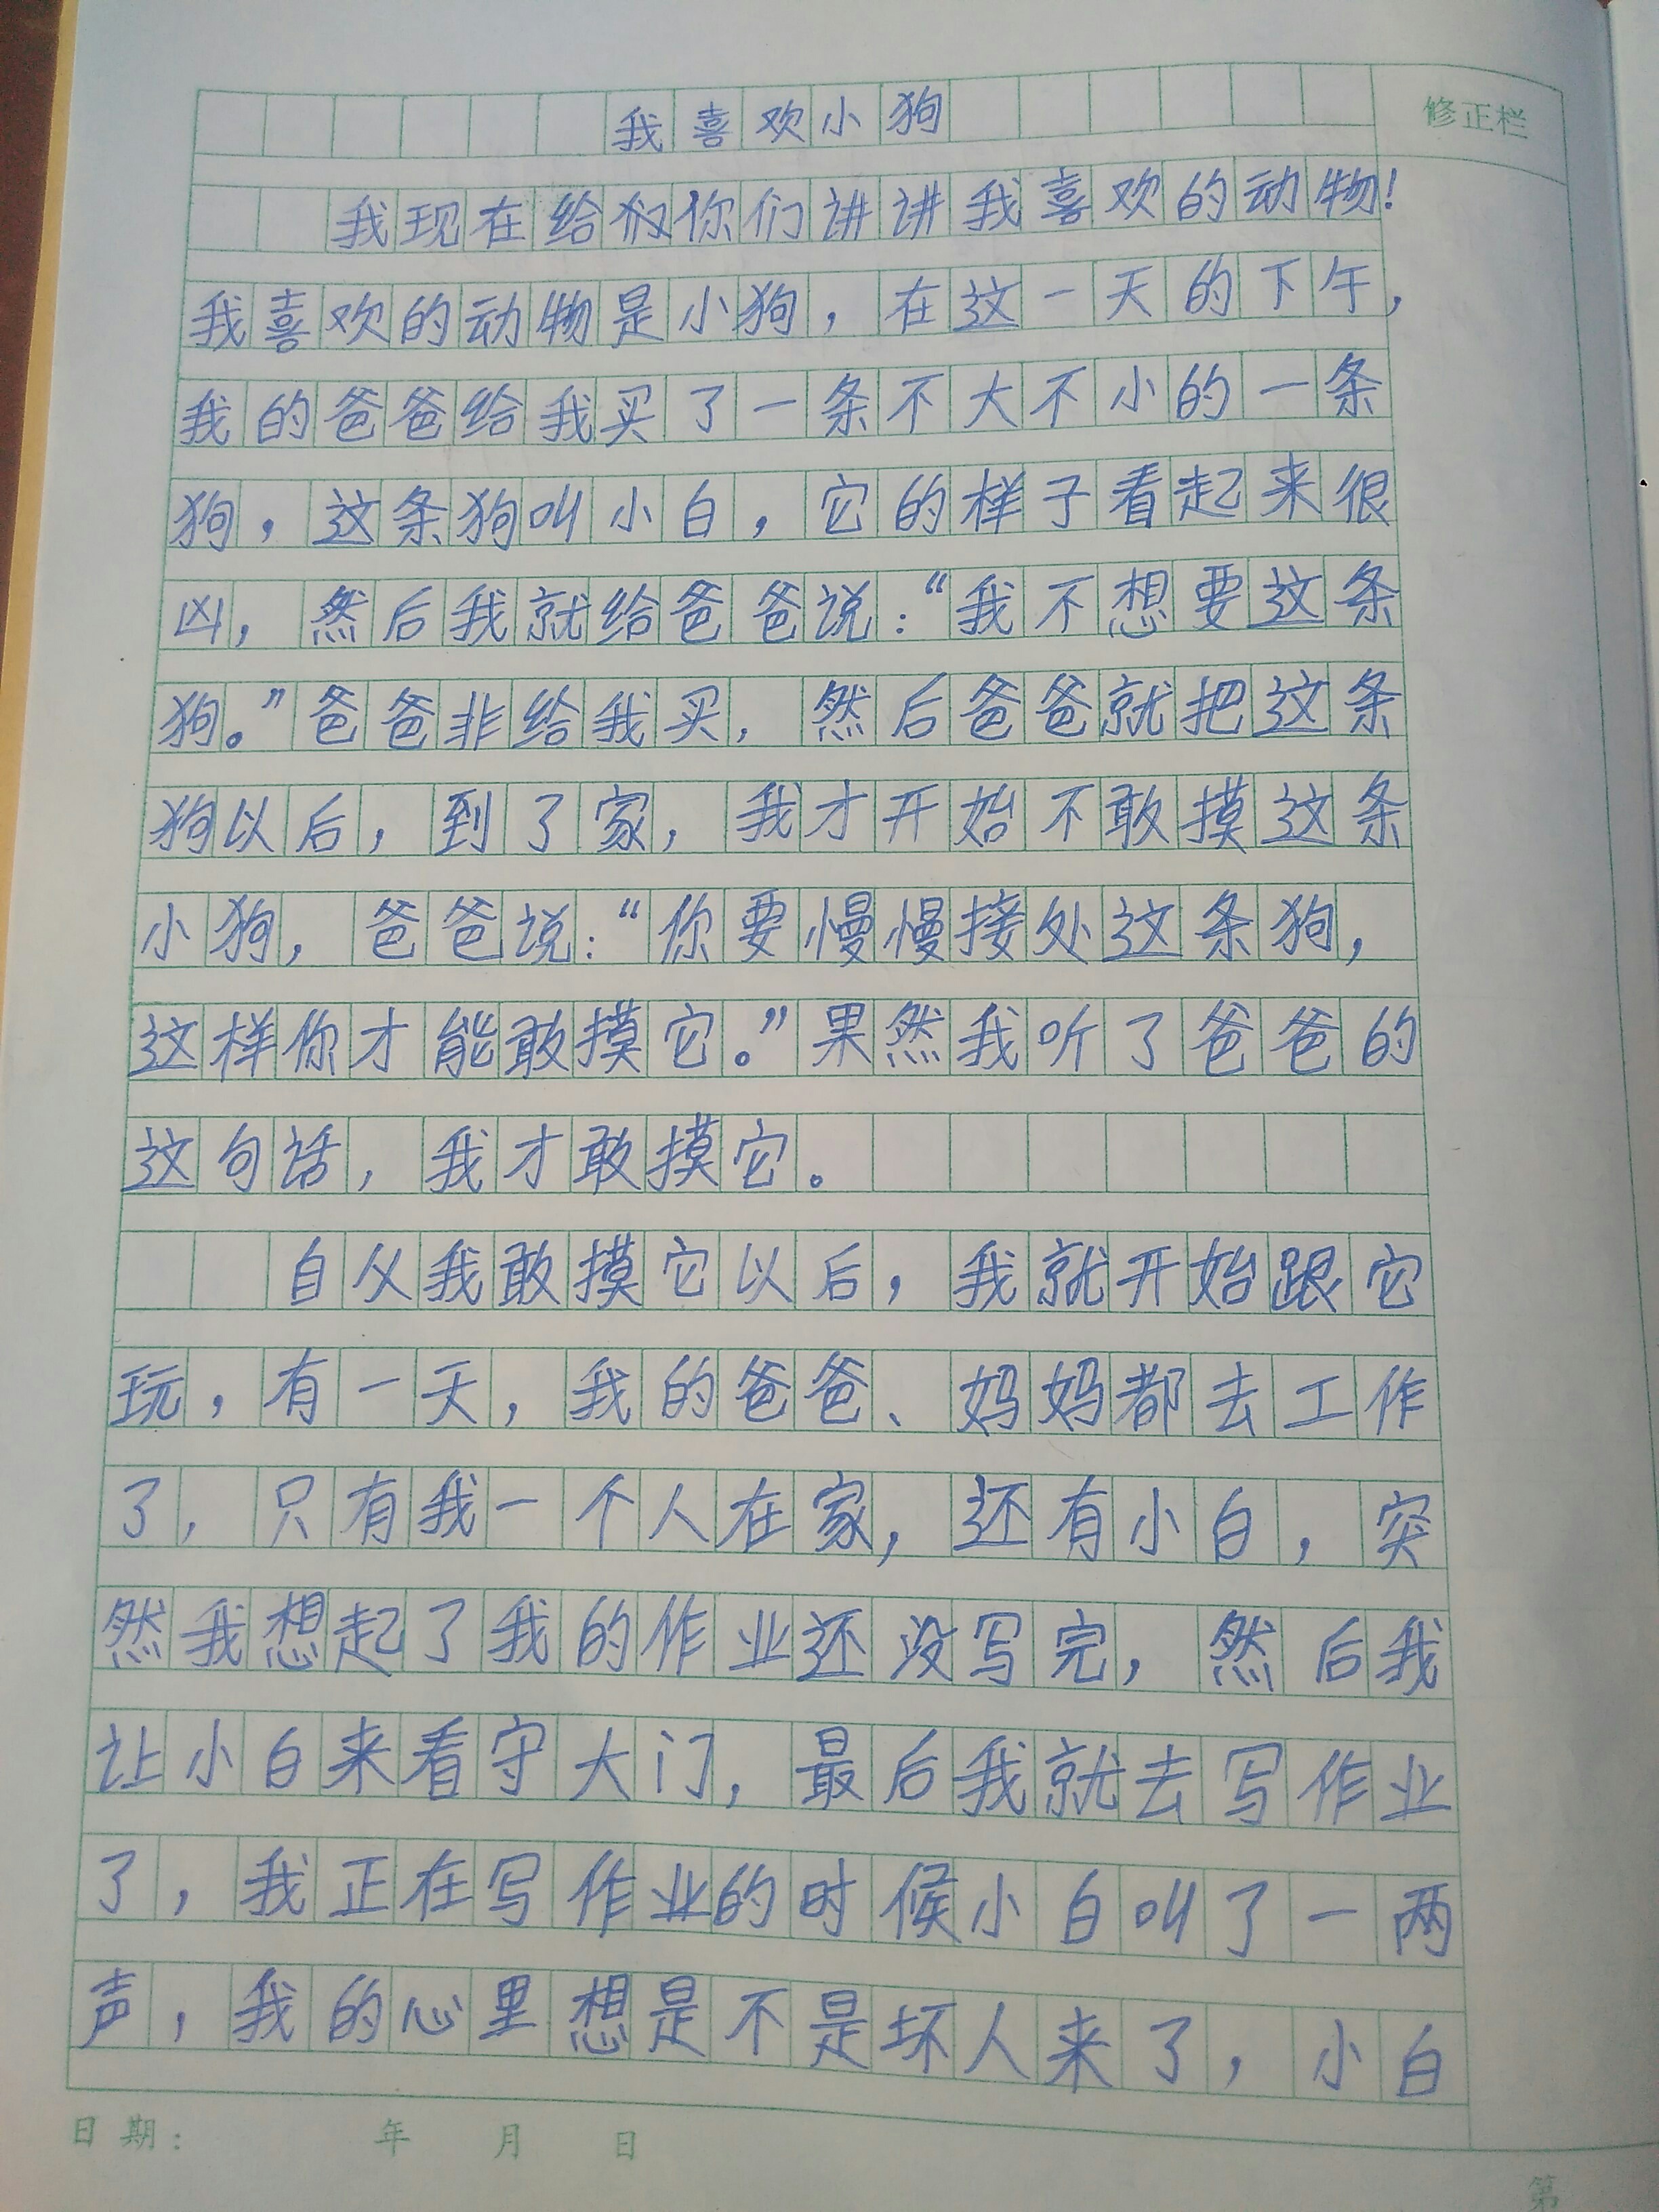 我喜欢小狗
修正栏
我现在给你们讲讲我喜欢的动物！
我喜欢的动物是小狗，在这一天的下午，
我的爸爸给我买了一条不大不小的一条
狗，这条狗叫小白，它的样子看起来很
凶，然后我就给爸爸说：“我不想要这条
狗。”爸爸非给我买，然后爸爸就把这条
狗以后，到了家，我才开始不敢摸这条
小狗，爸爸说：“你要慢慢接处这条狗，
这样你才能敢摸它。”果然我听了爸爸的
这句话，我才敢摸它。
自从我敢摸它以后，我就开始跟它
玩，有一天，我的爸爸、妈妈都去工作
了，只有我一个人在家，还有小白，突
然我想起了我的作业还没写完，然后我
让小白来看守大门，最后我就去写作业
了，我正在写作业的时候小白叫了一两
声，我的心里想是不是坏人来了，小白
日期： 年 月 日
第